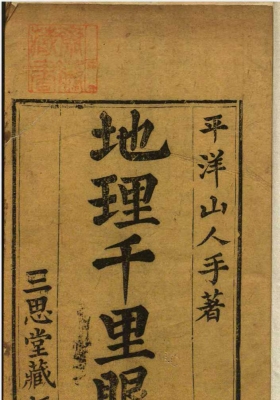 平洋山人手著
地理千里眼
三思堂藏